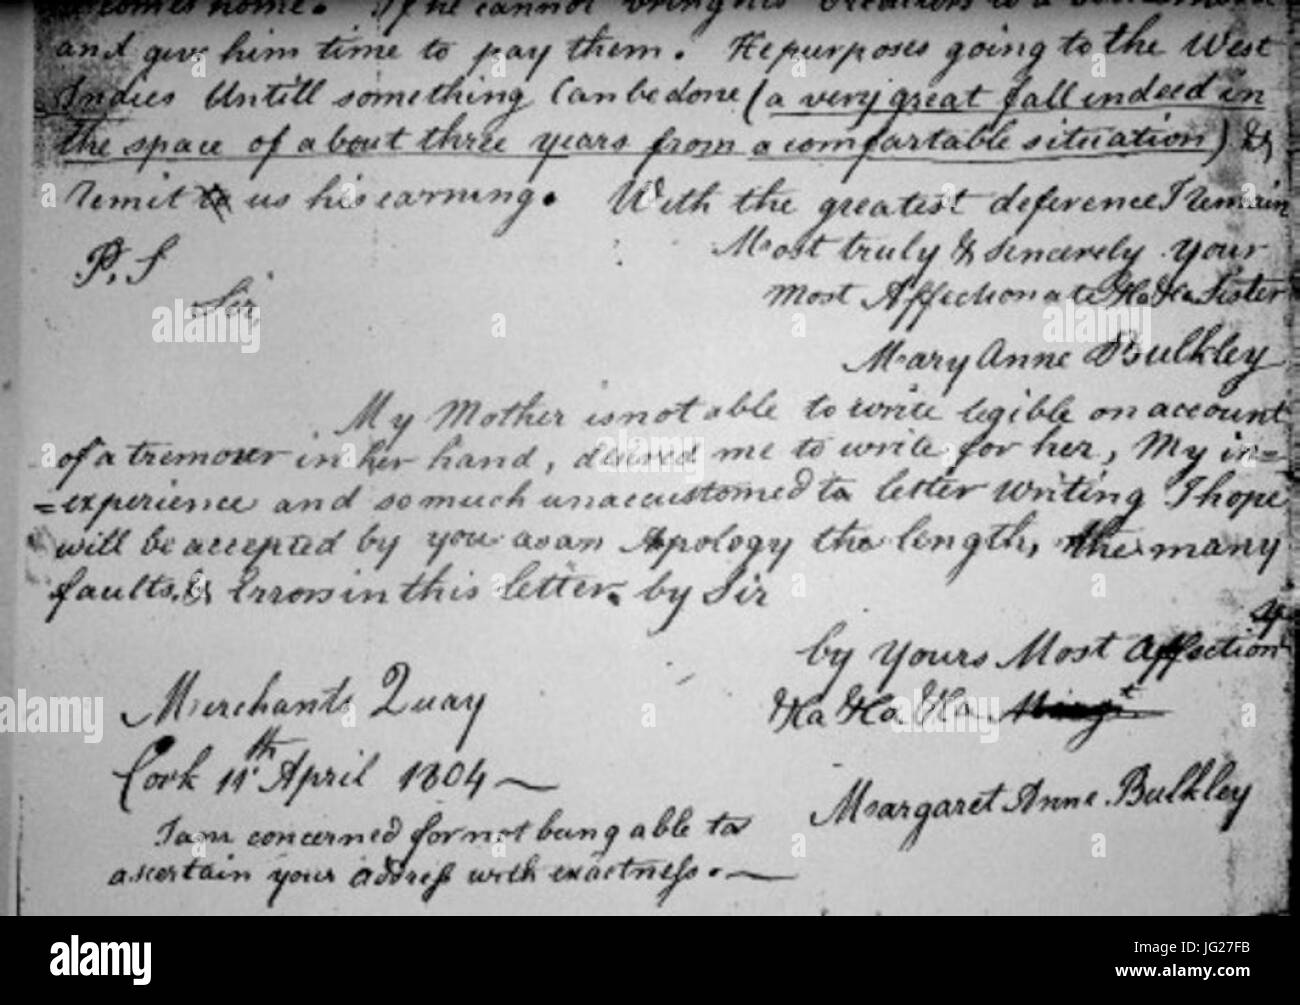 comes home. If he cannot bring his Creditors to a
and give him time to pay them. He purposes going to the West
Indies Untill something Can be done (a very great fall indeed in
the space of about three years from a comfortable situation) &
remit to us his earning. With the greatest deference I remain
Most truly & sincerely your
most Affectionate &ca &ca Sister
Mary Anne Bulkley
P. S
Sir,
My Mother is not able to write legible on account
of a tremour in her hand, desired me to write for her, My in=
=experience and so much unaccustomed to letter writing I hope
will be accepted by you as an Apology the length, the many
faults, & Errors in this letter. by Sir
by yours Most Affection
&ca &ca &ca
Margaret Anne Bulkley
Merchants Quay
Cork 11th April 1804
I am concerned for not being able to
ascertain your address with exactness.
alamy
alamy
Image ID: JG27FB
www.alamy.com